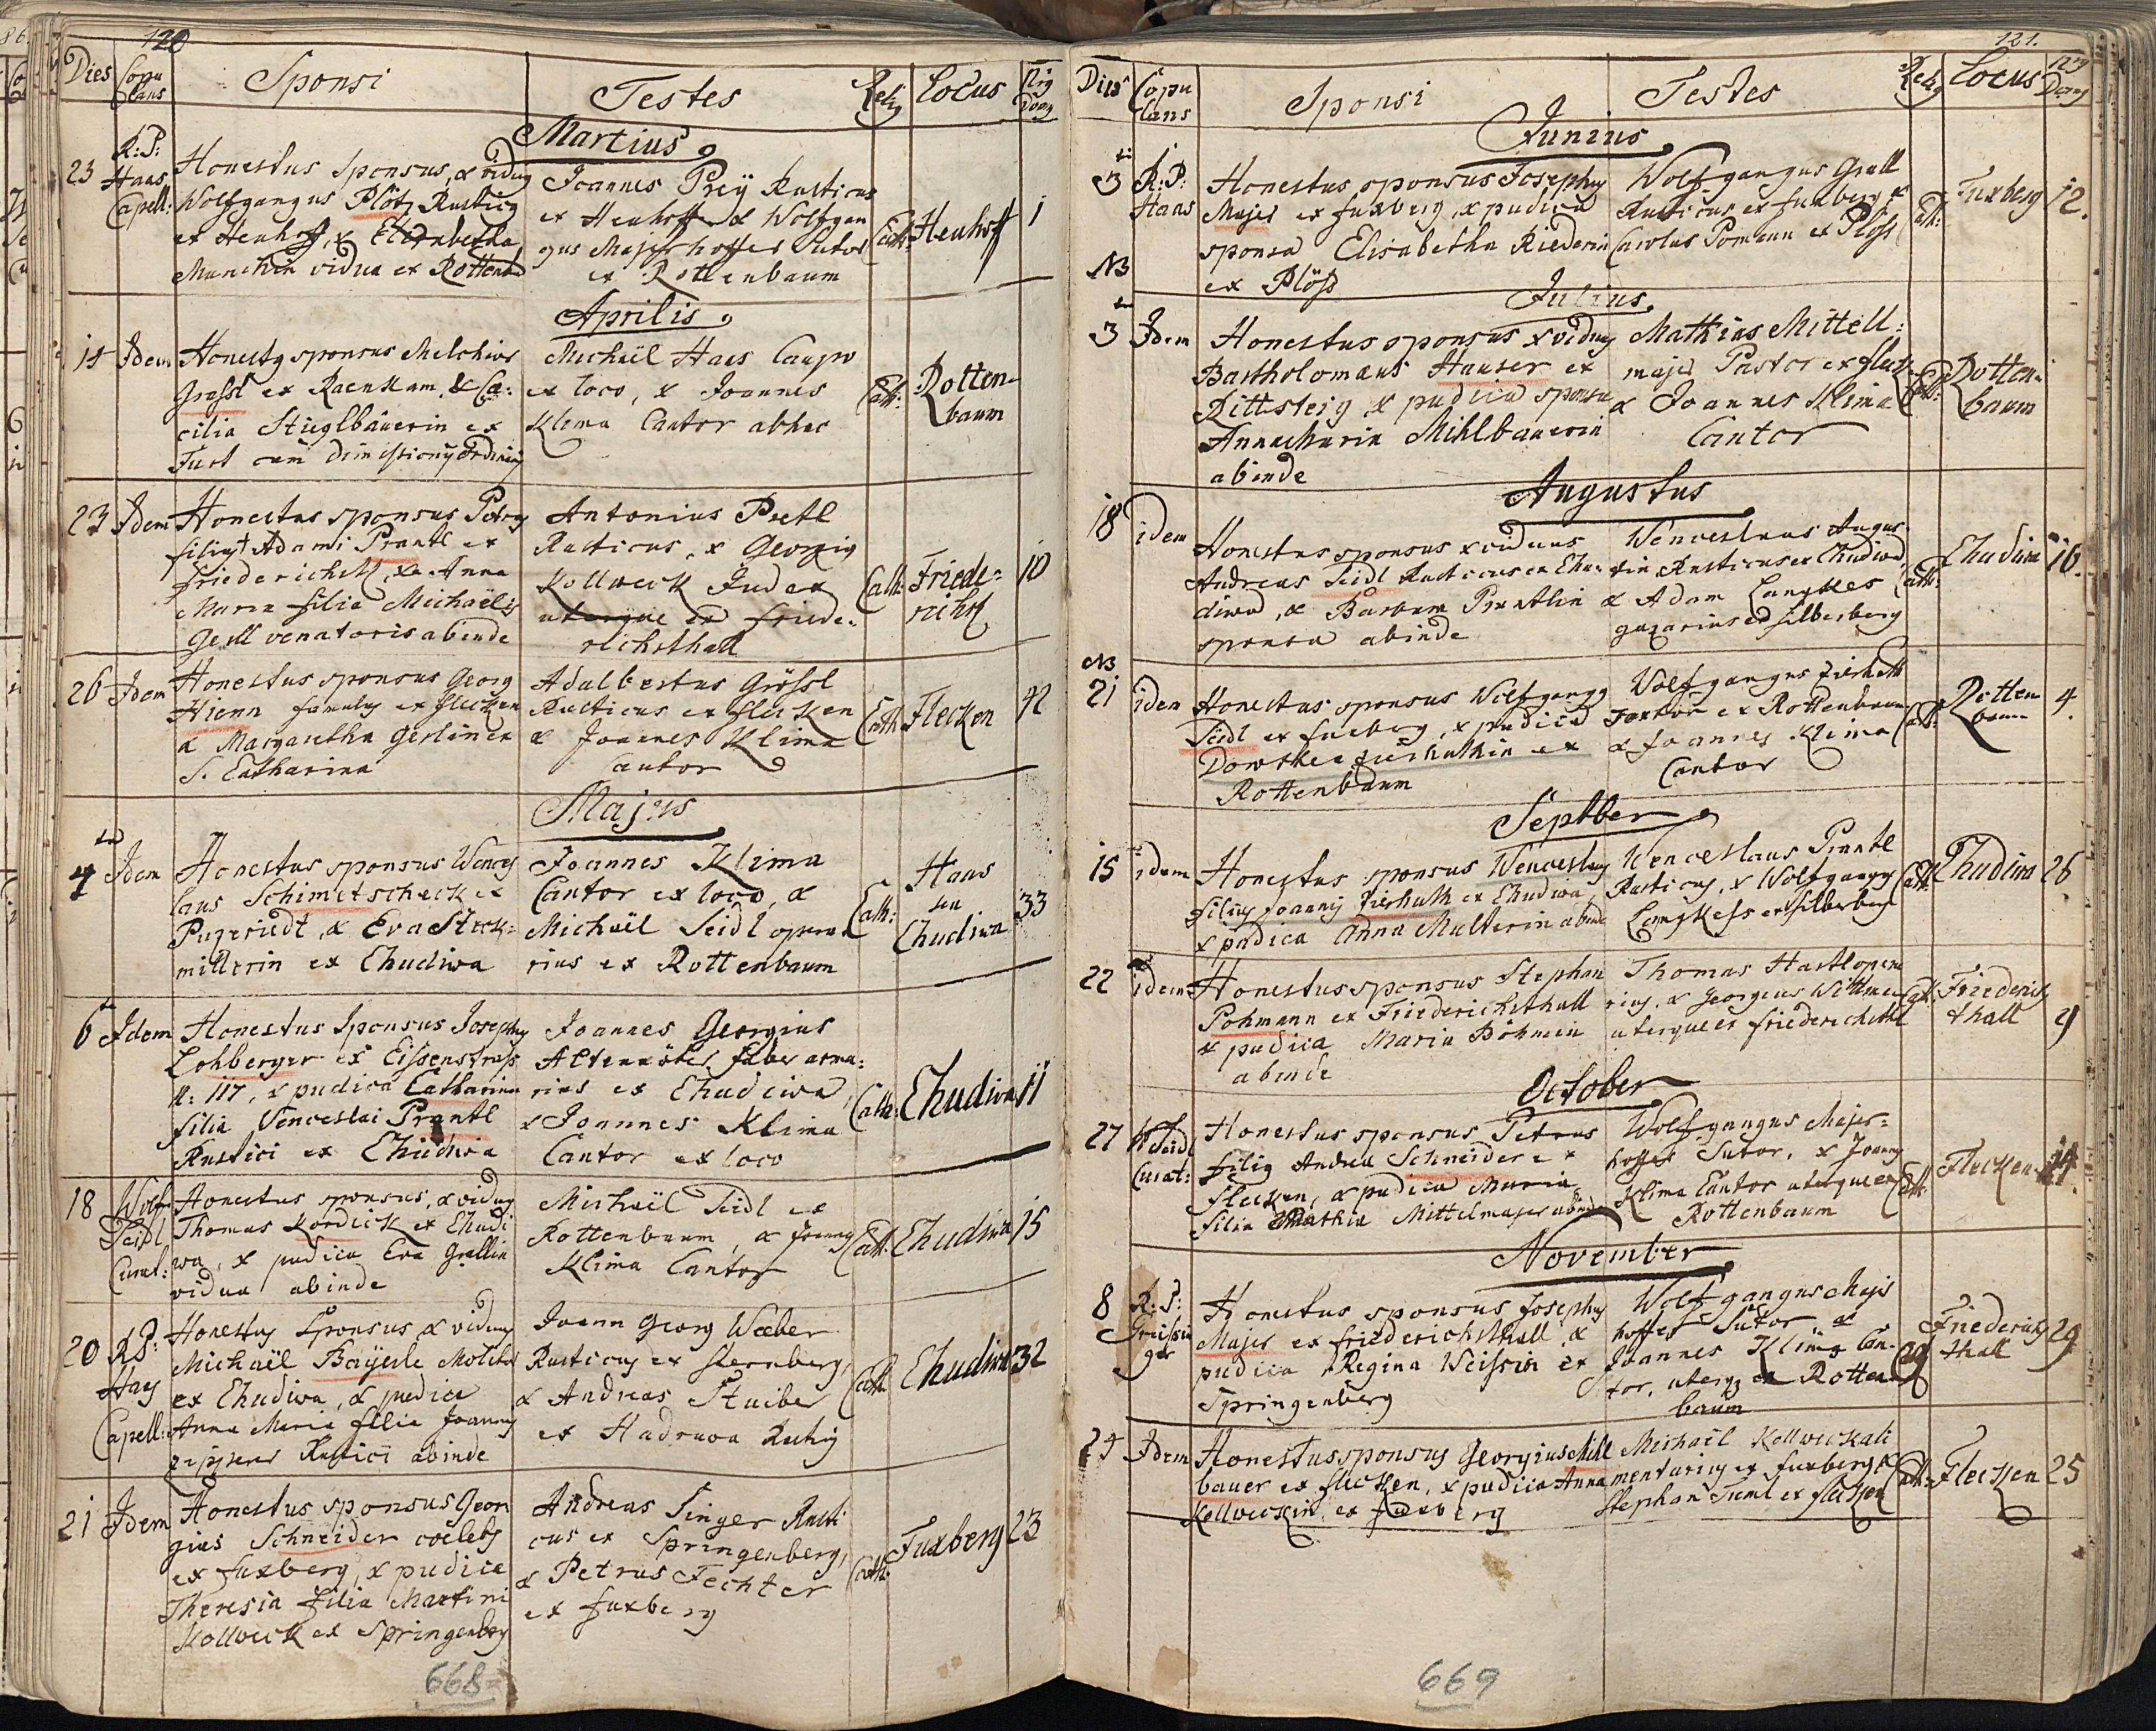 120
Dies Copu lans Sponsi Testes Relig Locus Nrg Dom
Martius
23 R: P: Haas Capell:
Honestus Sponsus, & viduy
Wolfgangus Plötz Rusticy
ex Heuhoff, & Elisabetha
vidua ex Rottenb
Joannes Preÿ Rusticus
ex Heuhoff & Wolfgan
gus Majerhoffer Sutor
ex Rottenbaum
Cath: Heuhoff 1
Aprilis
14 Idem
Honesty sponsus Melchior
Grassl ex Raenkam, & Cae:
cilia Stieglbäuerin ex
Furt cum dimissiony Ordinarij
Michaël Haas Caupo
ex loco, & Joannes
Klima Cantor ab hac
Cath: Rotten-
baum
23 Idem
Honestus sponsus Petry
filius Adami Prantl ex
Friederichsth, & Anna
Maria filia Michaëlis
Gesll venatoris abinde
Antonius Pretl
Rusticus, & Georgig
Kollweck Judex
uterque ex Friede-
richsthall
Cath: Friede-
richst 10
26 Idem
Honestus sponsus Georg
Hienn famuly ex Flecken
& Margaretha Gerlin ex
S. Catharina
Adalbertus Grössl
Rusticus ex Flecken
& Joannes Klima
Cantor
Cath: Flecken 42
Majus
4 Idem
Honestus sponsus Wences
laus Schimetscheck ex
Pugeriedt, & Eva Steck-
millerin ex Chudiwa
Joannes Klima
Cantor ex loco, &
Michaël Seidl opera
rius ex Rottenbaum
Cath: Haus
Chudiwa 33
6 Idem
Honestus Sponsus Josephy
Lohberger ex Eissenstrass
N: 117, & pudica Catharina
filia Venceslai Prantl
Rustici ex Chudiwa
Joannes Georgius
faber arma:
rius ex Chudiwa,
& Joannes Klima
Cantor ex loco
Cath: Chudiwa 11
18 Wolf Seidl Curat:
Honestus sponsus, & viduy
Thomas Kordick ex Chudi
wa, & pudica Eva Grallin
vidua abinde
Michaël Seidl ex
Rottenbaum, & Joannes
Klima Cantor
Cath: Chudiwa 15
20 R P: Hay Capell:
Honestus Sponsus & viduus
Michaël Baÿerle Molitor
ex Chudiwa, & pudica
Anna Maria filia Joannis
Rustici abinde
Joann Georg Weeber
Rusticus ex Sternberg,
& Andreas Stuiber
ex Hadruwa
Cath: Chudiwa 32
21 Idem
Honestus sponsus Geor
gius Schneider coelebs
ex Fuxberg, & pudica
Theresia filia Martini
Kollweck ex Springenberg
Andreas Singer Rusti
cus ex Springenberg,
& Petrus Fechter
ex Fuxberg
Cath: Fuxberg 23
668
121.
Dies Copu lans Sponsi Testes Relig Locus Nrg Domg
Junius
3 R: P: Haas
Honestus sponsus Josephy
Majer ex Fuxberg, & pudica
sponsa Elisabetha Riederin
ex Plöss
Wolfgangus Grall
Rusticus ex Fuxberg &
Carolus Pomann ex Plöss
Cath: Fuxberg 12.
NB
Julius
3 Idem
Honestus sponsus & viduy
Bartholomäus Hauser ex
Rittsteig, & pudica sponsa
Anna Maria Mihlbauerin
abinde
Mathias Mittell:
majer Pastor ex Fleck
& Joannes Klima
Cantor
Cath: Rotten-
baum
Augustus
18 idem
Honestus sponsus & viduus
Andreas Seidl Rusticus ex Chu-
diwa, & Barbara Prantlin
sponsa abinde
Wenceslaus Augus-
tin Rusticus ex Chudiwa,
& Adam
ex Silberberg
Cath: Chudiwa 16.
NB
21 idem
Honestus sponsus Wolfgangg
Seidl ex Fuxberg, & pudica
Dorothea Fierhuthin ex
Rottenbaum
Wolfgangus Fierhutt
Textor ex Rottenbaum
& Joannes Klima
Cantor
Cath: Rotten
baum 4.
Septber
15 idem
Honestus sponsus Wenceslaus
filius Joannis Fierhuth ex Chudiwa,
& pudica Anna Multerin abinde
Wenceslaus Prantl
Rusticus, & Wolfgangg
ex Silberberg
Cath: Chudiwa 26
22 idem
Honestus sponsus Stephan
Pohmann ex Friederichsthall
& pudica Maria Böhmin
abinde
Thomas Hastl opera
rius, & Georgius Wittman
uterque ex Friederichsthal
Cath: Friederichs
thall 9
October
27 W Seidl Curat:
Honestus sponsus Petrus
filig Andrea Schneider ex
Flecken, & pudica Maria
filia Mathia Mittelmajer abinde
Wolfgangus Majer-
hoffer Sutor, & Joanny
Klima Cantor uterque ex
Rottenbaum
Cath: Flecken 14.
November
8 R: P:
Honestus sponsus Josephy
Majer ex Friederichsthall &
pudica Regina Weissin ex
Springenberg
Wolfgangus Majer
hoffer Sutor &
Joannes Klima Can-
tor, uterq ex Rotten
baum
Friederichs
thall 29
24 Idem
Honestus sponsus Georgius Mihl
bauer ex Flecken, & pudica Anna
Kollweckin ex Fuxberg
Michaël Kollweck ali
mentarius ex Fuxberg &
Stephan Tieml ex Flecken
Cath: Flecken 25
669